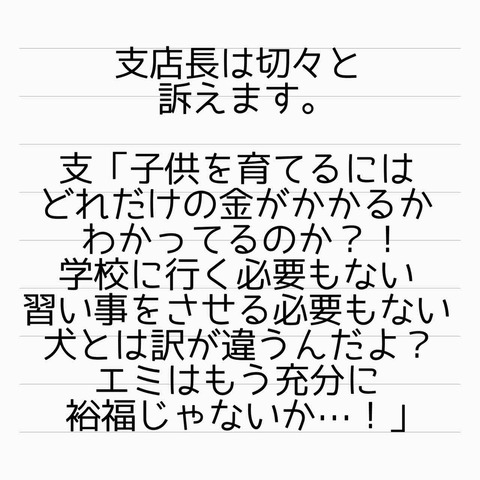 支店長は切々と
訴えます。
支「子供を育てるには
どれだけの金がかかるか
わかってるのか？！
学校に行く必要もない
習い事をさせる必要もない
犬とは訳が違うんだよ？
エミはもう充分に
裕福じゃないか…！」